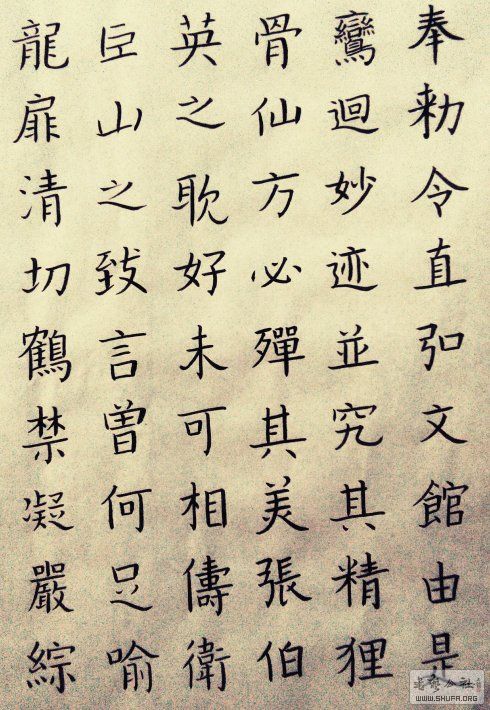 奉勑令直弘文館由是
鸞迴妙迹並究其精狸
骨仙方必殫其美張伯
英之耽好未可相儔衛
巨山之致言曾何足喻
龍扉清切鶴禁凝嚴綜
WWW.SHUFA.ORG